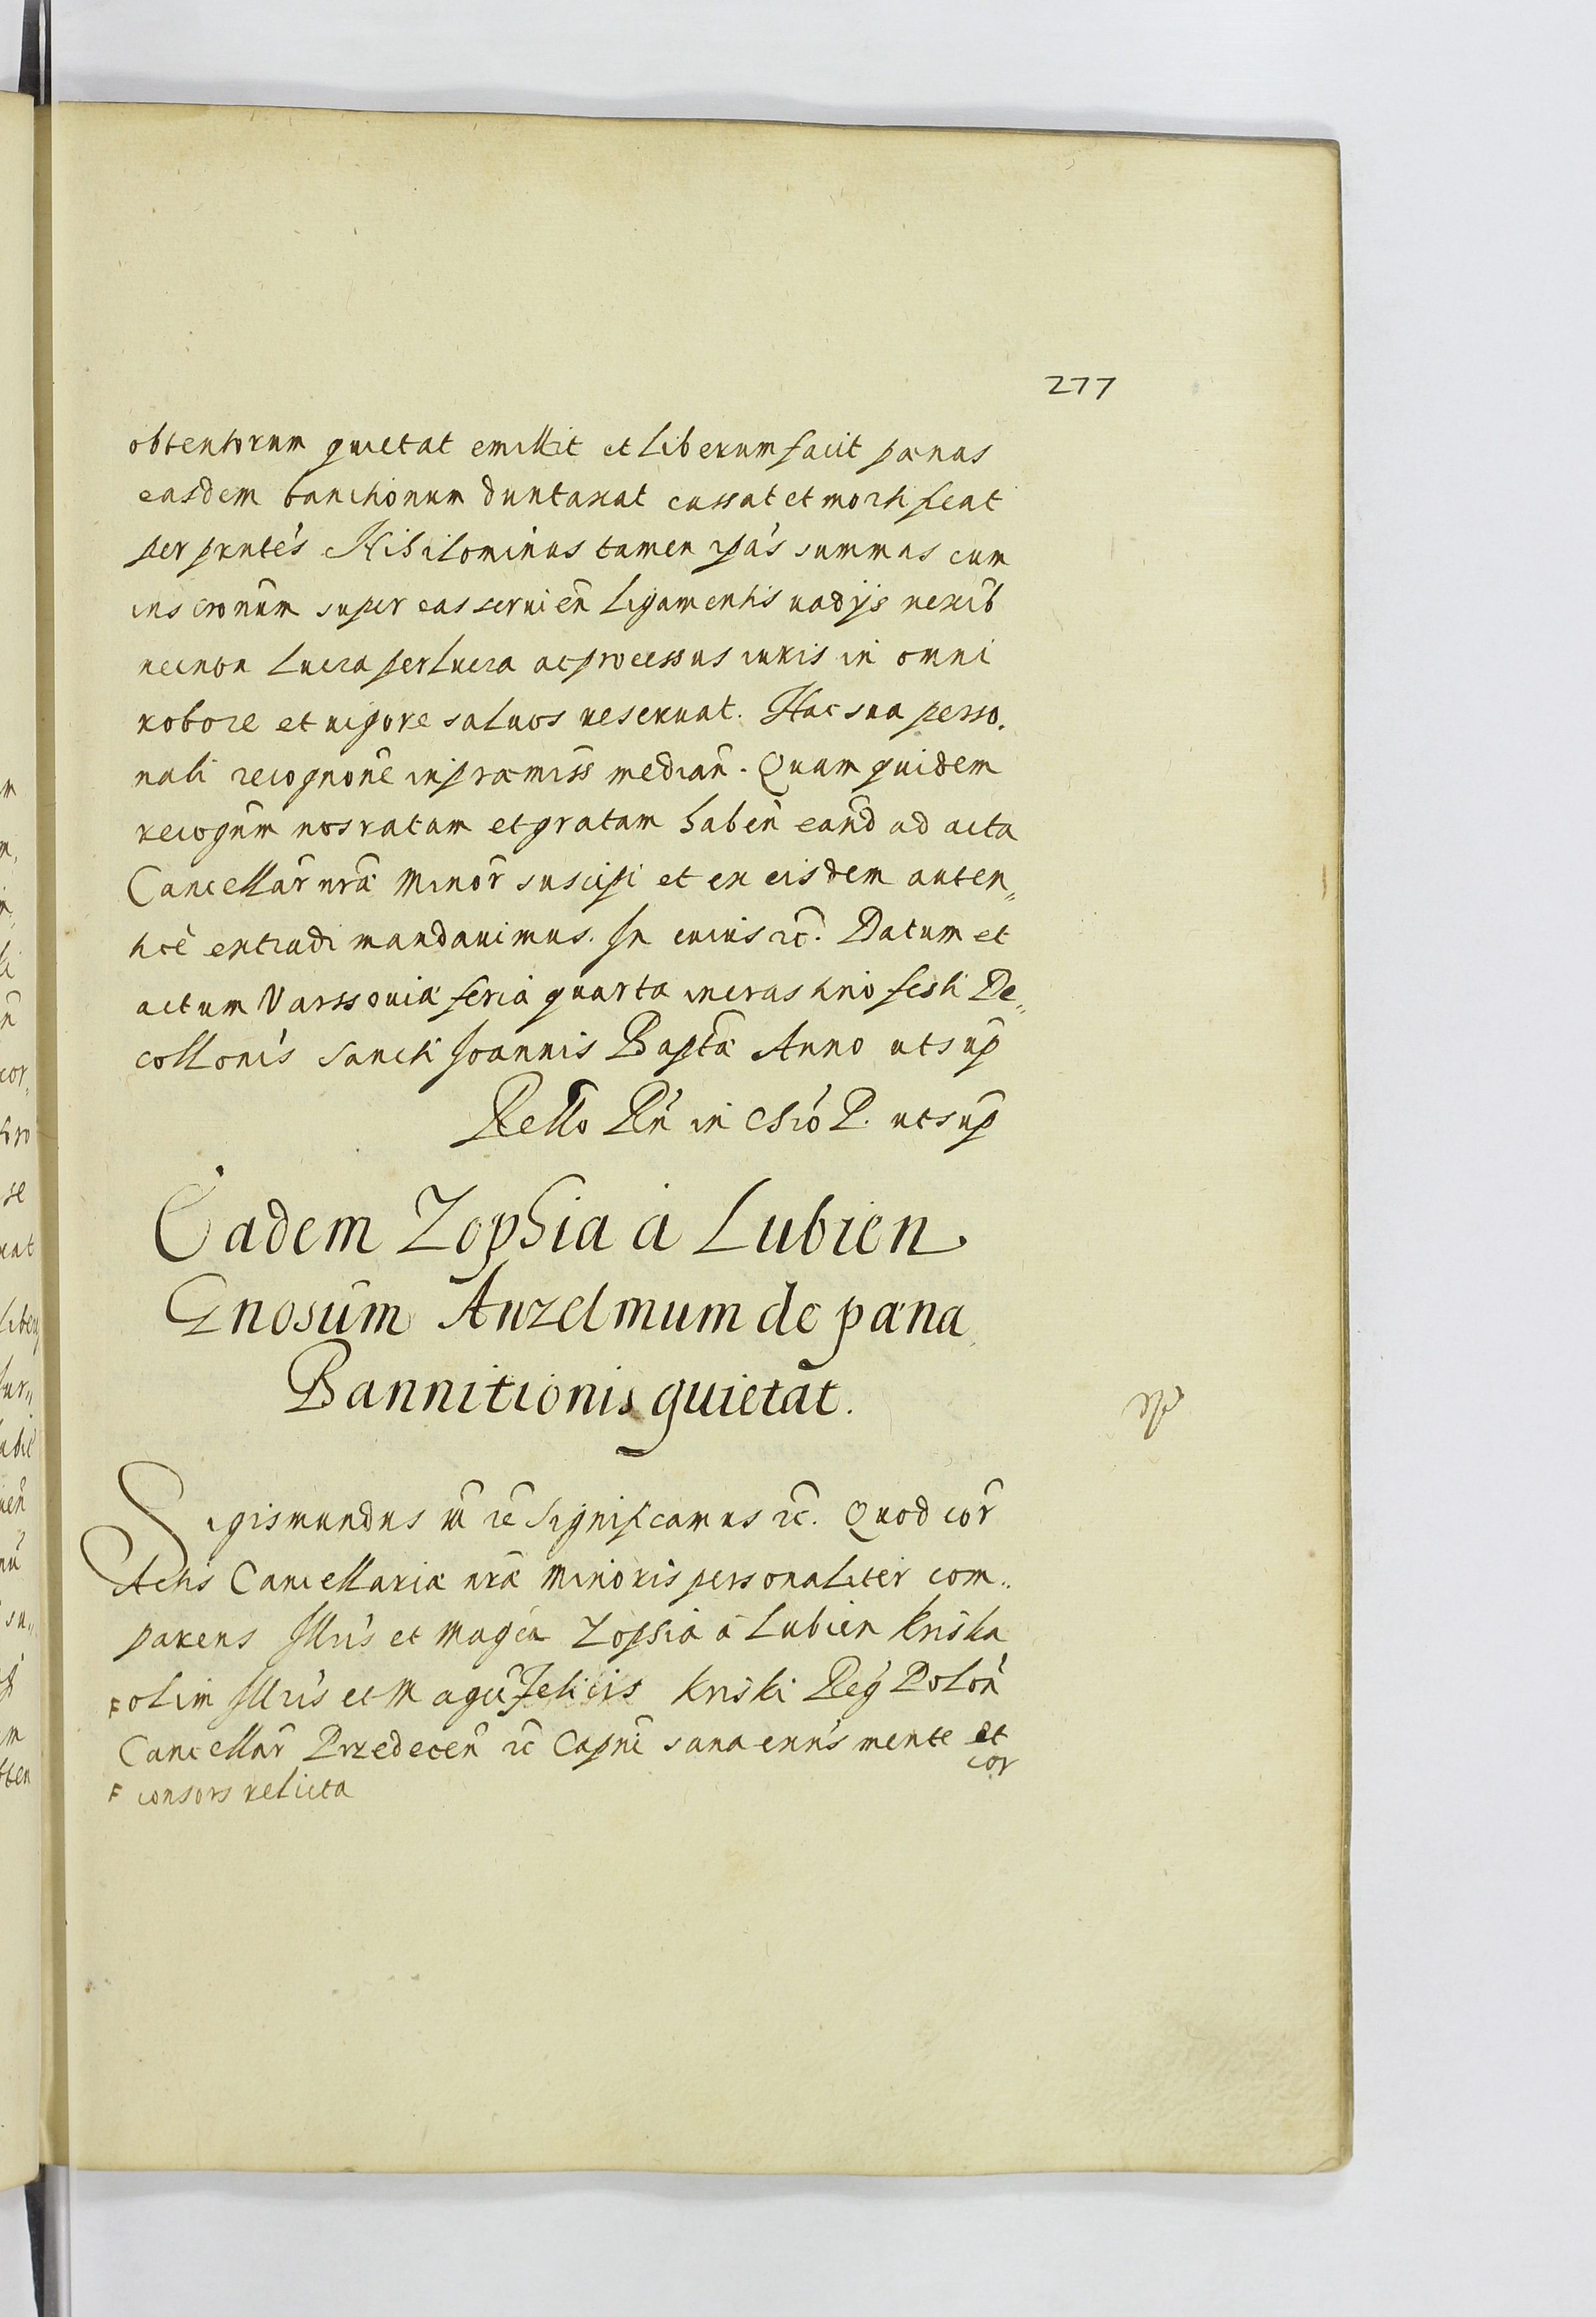 277
obtentorum quietat emittit et liberum facit pænas
easdem banitionum duntaxat cassat et mortificat
per pn̄tes Nihilominus tamen ipās summas cum
inscronūm super eas servien̄ ligamentis vadijs nexib̄
necnon lucra perlucra ac processus iuris in omni
robore et vigore salvos reservat. Hac sua perso,
nali recognonē in præmiss̄ median̄. Quam quidem
recogn̄m nos ratam et gratam haben̄ eand̄ ad acta
Cancellar̄ nr̄æ Minor̄ suscipi et ex eisdem auten,,
ticē extradi mandavimus. In cuius rc̄. Datum et
actum Varssoviæ feria quarta in crastinō festi De,,
collonīs sancti Joannis Bapt̄æ Anno ut sup̄
Rello Rn̄ in Chrō P. ut sup̄
Eadem Zophia à Lubien
Gnosūm Anzelmum de pæna
Bannitionis quietat.
Sigismundus iii rc̄ Significamus rc̄. Quod cor̄
Actis Cancellariæ nr̄æ Minoris personaliter com,,
parens Illrīs et Magca Zophia à Lubien Kriska
F olim Illrīs et Magci Felicis Kriski Reḡ Polon̄
Cancellar̄ Przedecen̄ rc̄ Capn̄i sana exn̄s mente et
cor
F consors relicta